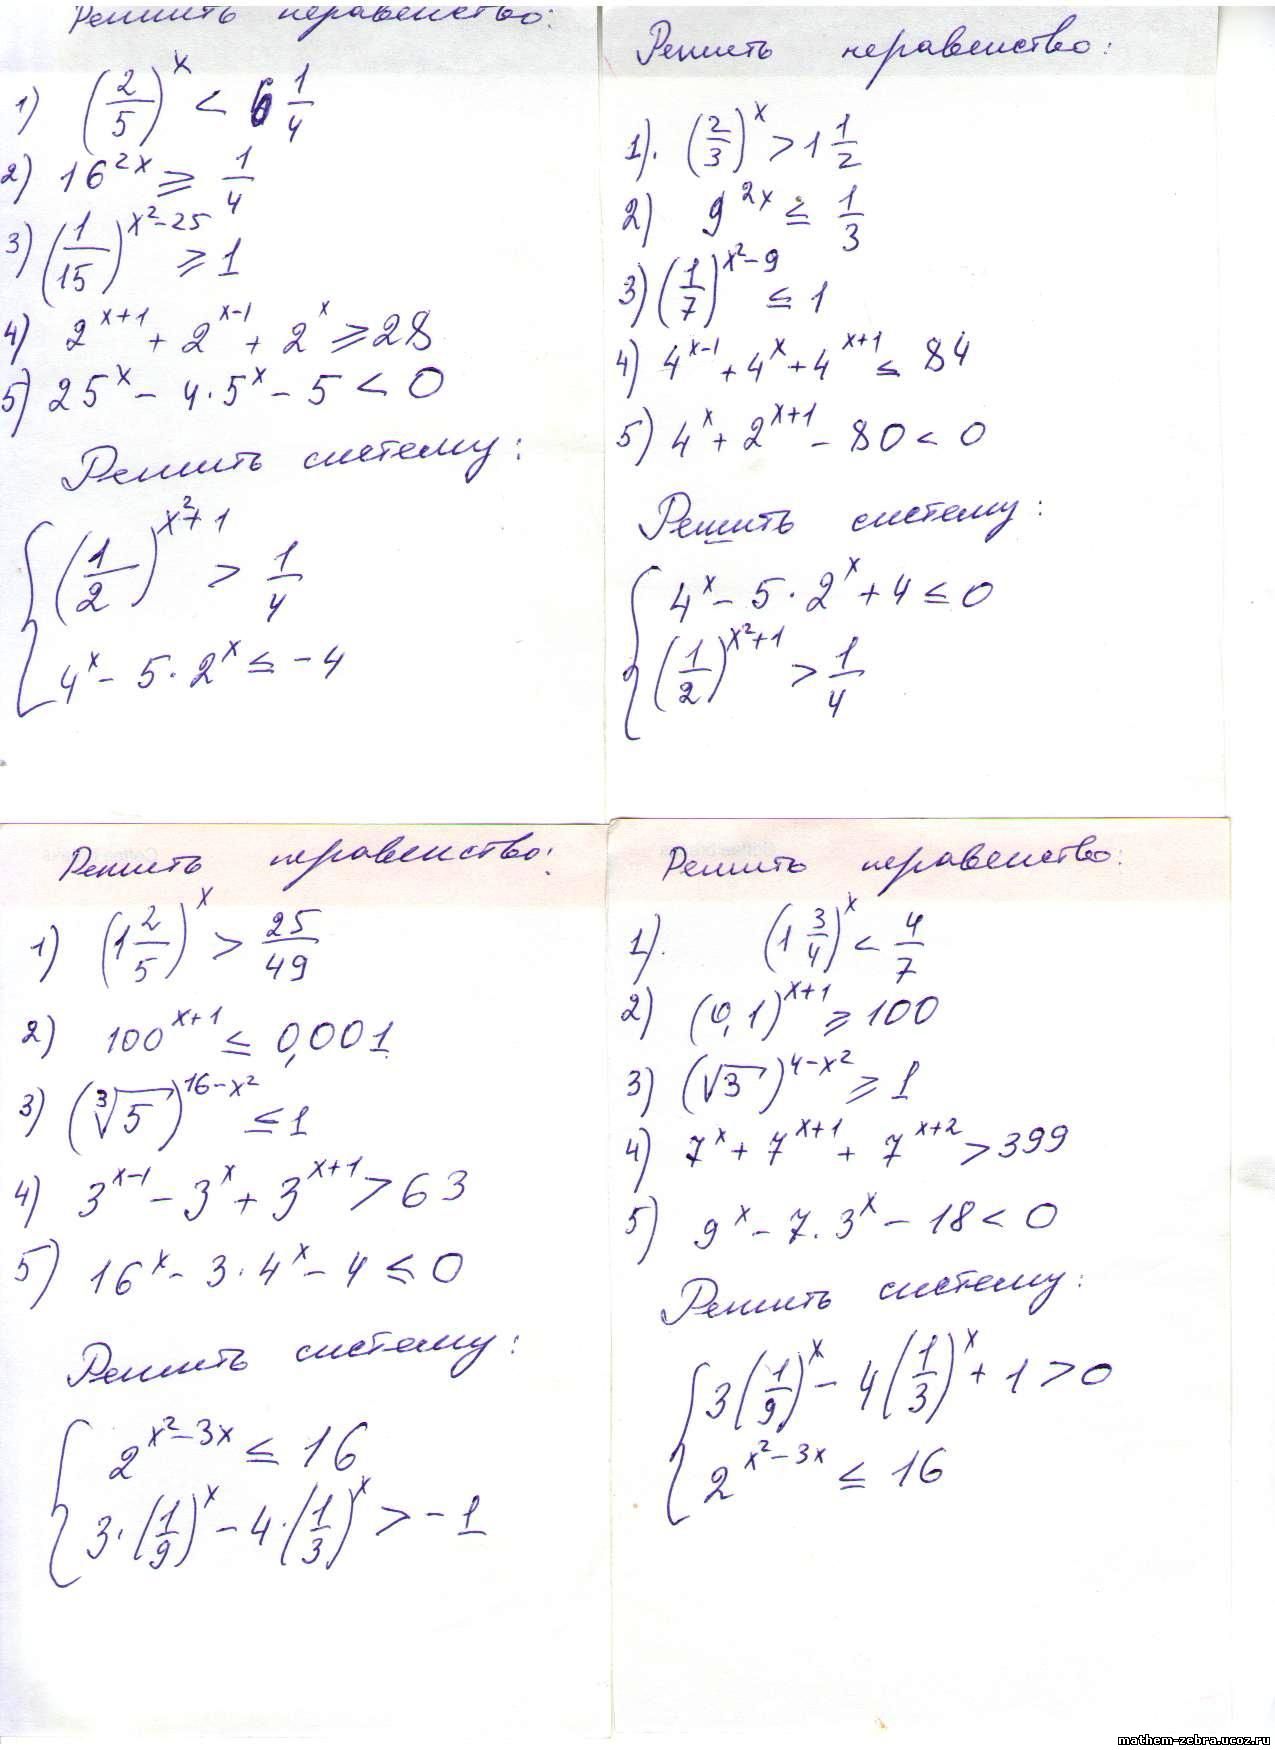 Решить неравенство:
1) (2/5)^x < 6 1/4
2) 16^{2x} ⩾ 1/4
3) (1/15)^{x²-25} ⩾ 1
4) 2^{x+1} + 2^{x-1} + 2^x ⩾ 28
5) 25^x - 4·5^x - 5 < 0
Решить систему:
{ (1/2)^{x²+1} > 1/4
4^x - 5·2^x ≤ -4
Решить неравенство:
1). (2/3)^x > 1 1/2
2) 9^{2x} ≤ 1/3
3) (1/7)^{x²-9} ≤ 1
4) 4^{x-1} + 4^x + 4^{x+1} ≤ 84
5) 4^x + 2^{x+1} - 80 < 0
Решить систему:
{ 4^x - 5·2^x + 4 ≤ 0
(1/2)^{x²+1} > 1/4
Решить неравенство:
1) (1 2/5)^x > 25/49
2) 100^{x+1} ≤ 0,001
3) (∛5)^{16-x²} ≤ 1
4) 3^{x-1} - 3^x + 3^{x+1} > 63
5) 16^x - 3·4^x - 4 ≤ 0
Решить систему:
{ 2^{x²-3x} ≤ 16
3·(1/9)^x - 4·(1/3)^x > -1
Решить неравенство:
1). (1 3/4)^x < 4/7
2) (0,1)^{x+1} ⩾ 100
3) (√3)^{4-x²} ⩾ 1
4) 7^x + 7^{x+1} + 7^{x+2} > 399
5) 9^x - 7·3^x - 18 < 0
Решить систему:
{ 3(1/9)^x - 4(1/3)^x + 1 > 0
2^{x²-3x} ≤ 16
mathem-zebra.ucoz.ru